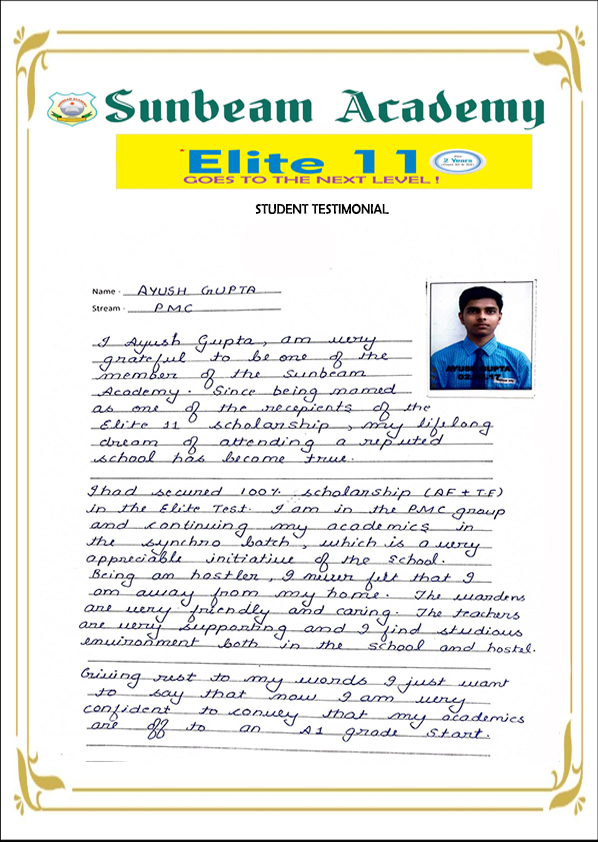 Sunbeam Academy
Elite 11
2 Years
GOES TO THE NEXT LEVEL !
STUDENT TESTIMONIAL
Name - AYUSH GUPTA
Stream - PMC
AYUSH GUPTA
I Ayush Gupta, am very
grateful to be one of the
member of the Sunbeam
Academy. Since being named
as one of the recepients of the
Elite 11 scholarship, my lifelong
dream of attending a reputed
school has become true.
I had secured 100% scholarship (AF + T.F)
in the Elite Test. I am in the PMC group
and continuing my academics in
the synchro batch, which is a very
appreciable initiative of the school.
Being an hostler, I never felt that I
am away from my home. The wardens
are very friendly and caring. The teachers
are very supporting and I find studious
environment both in the school and hostel.
Giving rest to my words I just want
to say that now I am very
confident to convey that my academics
are off to an A1 grade start.